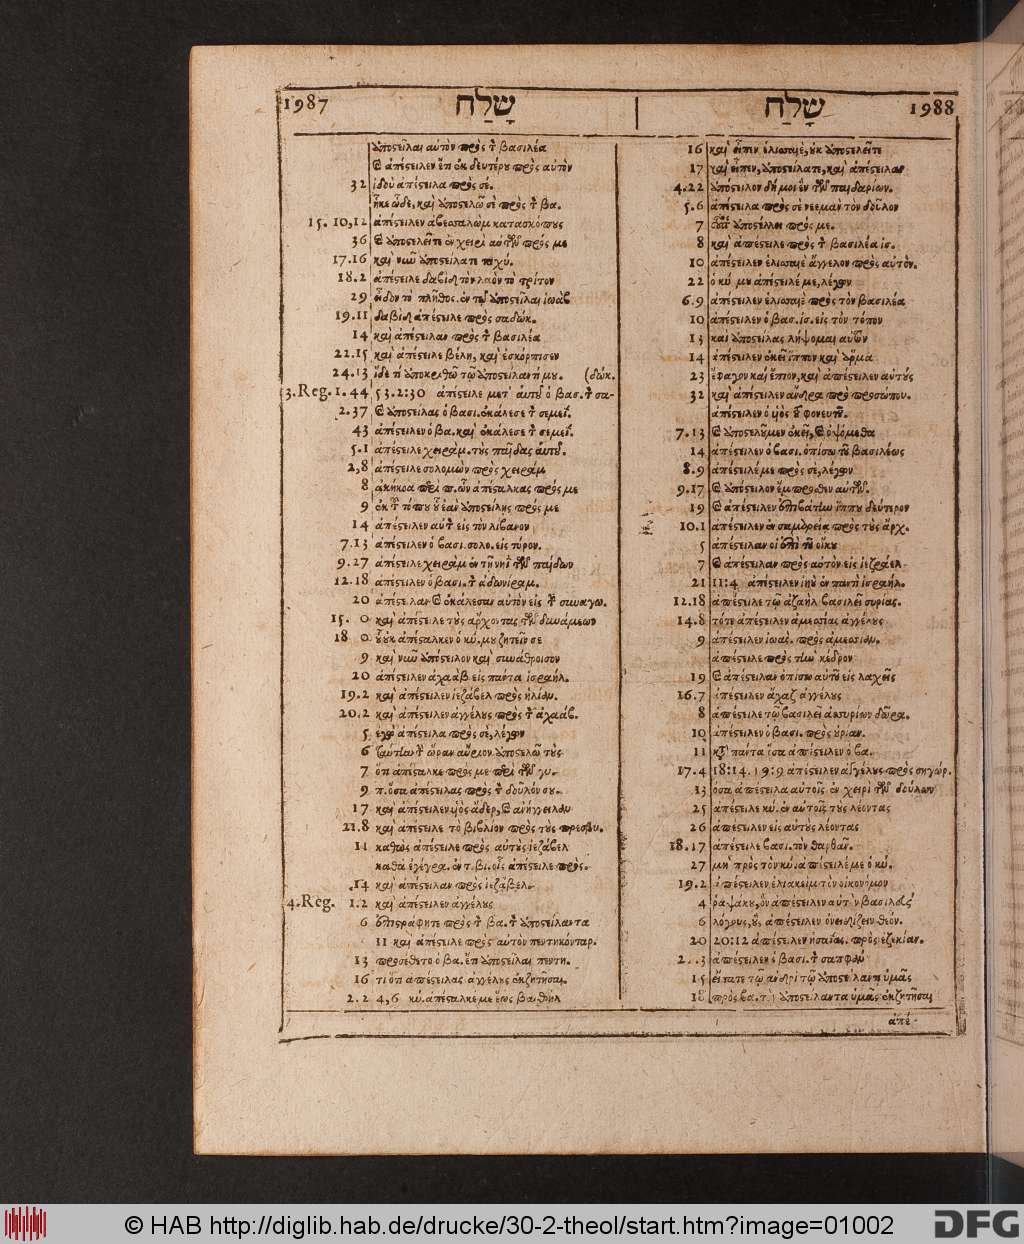 1987 שָׁלַח שָׁלַח 1988
ὑποστεῖλαι αὐτὸν πρὸς τ βασιλέα
ἀπέστειλεν ἔτι ἐκ δευτέρου πρὸς αὐτὸν
32 ἰδοὺ ἀπέστειλα πρὸς σέ.
ἧκε ὧδε, καὶ ἀποστελῶ σὲ πρὸς τ βα.
15. 10,12 ἀπέστειλεν ἀβεσσαλὼμ κατασκόπους
36 ἀποστελεῖτε ἐν χειρὶ αὐτῶν πρός με
17.16 καὶ νῦν ἀποστείλατε ταχύ.
18.2 ἀπέστειλε δαβὶδ τὸν λαὸν τὸ τρίτον
29 εἶδον τὸ πλῆθος ἐν τῷ ἀποστεῖλαι ἰωὰβ
19.11 δαβὶδ ἀπέστειλε πρὸς σαδώκ.
14 καὶ ἀπέστειλαν πρὸς τ βασιλέα
22.15 καὶ ἀπέστειλε βέλη, καὶ ἐσκόρπισεν
24.13 (δώκ.
3.Reg.1.44 53.2:30 ἀπέστειλε μετ' αὐτοῦ ὁ βασ. τ σα-
2.37 ἀποστείλας ὁ βασι. ἐκάλεσε τ σεμεΐ.
43 ἀπέστειλεν ὁ βα. καὶ ἐκάλεσε τ σεμεΐ.
5.1 ἀπέστειλε χειράμ. τοὺς παῖδας αὐτοῦ.
2,8 ἀπέστειλε σολομὼν πρὸς χειράμ
8 ἀκήκοα περὶ π. ὧν ἀπέσταλκας πρός με
9 ἐκ τ τόπου οὗ ἐὰν ἀποστείλῃς πρός με
14 ἀπέστειλεν αὐτ εἰς τὸν λίβανον
7.13 ἀπέστειλεν ὁ βασι. σολο. εἰς τύρον.
9.27 ἀπέστειλε χειρὰμ ἐν τῇ νηῒ τῶν παίδων
12.18 ἀπέστειλεν ὁ βασι. τ ἀδωνιράμ.
20 ἀπέστειλαν ἐκάλεσαν αὐτὸν εἰς τ συναγω.
15. 0 καὶ ἀπέστειλε τοὺς ἄρχοντας τῶν δυνάμεων
18 0 οὐκ ἀπέσταλκεν ὁ κύ. μου ζητεῖν σε
9 καὶ νῦν ἀπόστειλον καὶ συνάθροισον
20 ἀπέστειλεν ἀχαὰβ εἰς πάντα ἰσραήλ.
19.2 καὶ ἀπέστειλεν ἰεζάβελ πρὸς ἠλιού.
20.2 καὶ ἀπέστειλεν ἀγγέλους πρὸς τ ἀχαάβ.
5 ἐγὼ ἀπέστειλα πρὸς σὲ, λέγων
6 ταύτην τ ὥραν αὔριον ἀποστελῶ τοὺς
7 ὅτι ἀπέσταλκε πρός με περὶ τῶν γυ-
9 π. ὅσα ἀπέστειλας πρὸς τ δοῦλόν σου.
17 καὶ ἀπέστειλεν υἱὸς ἄδερ, ἀνήγγειλαν
21.8 καὶ ἀπέστειλε τὸ βιβλίον πρὸς τοὺς πρεσβυ.
11 καθὼς ἀπέστειλε πρὸς αὐτοὺς ἰεζάβελ
καθὰ ἐγέγρα. ἐν τ. βι. οἷς ἀπέστειλε πρὸς.
14 καὶ ἀπέστειλαν πρὸς ἰεζάβελ.
4.Reg. 1.2 καὶ ἀπέστειλεν ἀγγέλους
6 ἐπιστράφητε πρὸς τ βα. τ ἀποστείλαντα
11 καὶ ἀπέστειλε πρὸς αὐτὸν πεντηκόνταρ.
13 προσέθετο ὁ βα. ἔτι ἀποστεῖλαι πεντη.
16 τί ὅτι ἀπέστειλας ἀγγέλους ἐκζητῆσαι
2.2 4,6 κύ. ἀπέσταλκέ με ἕως βαιθήλ
16 καὶ εἶπεν ἐλισσαιὲ, οὐκ ἀποστελεῖτε
17 καὶ εἶπεν, ἀποστείλατε, καὶ ἀπέστειλαν
4.22 ἀπόστειλον δή μοι ἓν τῶν παιδαρίων.
5.6 ἀπέστειλα πρὸς σὲ νεεμὰν τὸν δοῦλον
7 ἀποστέλλει πρός με.
8 καὶ ἀπέστειλε πρὸς τ βασιλέα ἰσ.
10 ἀπέστειλεν ἐλισσαιὲ ἄγγελον πρὸς αὐτόν.
22 ὁ κύ μου ἀπέστειλέ με, λέγων
6.9 ἀπέστειλεν ἐλισσαιὲ πρὸς τὸν βασιλέα
10 ἀπέστειλεν ὁ βασ. ἰσ. εἰς τὸν τόπον
13 καὶ ἀποστείλας λήψομαι αὐτὸν
14 ἀπέστειλεν ἐκεῖ ἵππον καὶ ἅρμα
23 ἔφαγον καὶ ἔπιον, καὶ ἀπέστειλεν αὐτοὺς
32 καὶ ἀπέστειλεν ἄνδρα πρὸ προσώπου.
ἀπέστειλεν ὁ υἱὸς τοῦ φονευτοῦ.
7.13 ἀποστελοῦμεν ἐκεῖ, ὀψόμεθα
14 ἀπέστειλεν ὁ βασι. ὀπίσω τοῦ βασιλέως
8.9 ἀπέστειλέ με πρὸς σὲ, λέγων
9.17 ἀπόστειλον ἔμπροσθεν αὐτῶν.
19 ἀπέστειλεν ἐπιβάτην ἵππου δεύτερον
10.1 ἀπέστειλεν ἐν σαμαρείᾳ πρὸς τοὺς ἄρχ.
5 ἀπέστειλαν οἱ ἐπὶ τοῦ οἴκου
7 ἀπέστειλαν πρὸς αὐτὸν εἰς ἰεζραέλ
21 11:4 ἀπέστειλεν ἰηοὺ ἐν παντὶ ἰσραήλ.
12.18 ἀπέστειλε τῷ ἀζαὴλ βασιλεῖ συρίας.
14.8 τότε ἀπέστειλεν ἀμεσσίας ἀγγέλους
9 ἀπέστειλεν ἰωάς. πρὸς ἀμεσσίαν.
ἀπέστειλε πρὸς τὴν κέδρον
19 ἀπέστειλαν ὀπίσω αὐτοῦ εἰς λαχεῖς
16.7 ἀπέστειλεν ἄχαζ ἀγγέλους
8 ἀπέστειλε τῷ βασιλεῖ ἀσσυρίων δῶρα.
10 ἀπέστειλεν ὁ βασι. πρὸς οὐρίαν.
11 κατὰ πάντα ὅσα ἀπέστειλεν ὁ βα.
17.4 18:14. 19:9 ἀπέστειλεν ἀγγέλους πρὸς σηγώρ.
13 ὅσα ἀπέστειλα αὐτοῖς ἐν χειρὶ τῶν δούλων
25 ἀπέστειλε κύ. ἐν αὐτοῖς τοὺς λέοντας
26 ἀπέστειλεν εἰς αὐτοὺς λέοντας
18.17 ἀπέστειλε βασι. τὸν θαρθὰν.
27 μὴ πρὸς τὸν κύ. ἀπέστειλέ με ὁ κύ.
19.2 ἀπέστειλεν ἐλιακεὶμ τὸν οἰκονόμον
4 ῥαψάκου, ὃν ἀπέστειλεν αὐτὸν βασιλεὺς
6 λόγους, ἀπέστειλεν ὀνειδίζειν θεόν.
20 20:12 ἀπέστειλεν ἡσαΐας. πρὸς ἐζεκίαν.
ἀπέστειλεν ὁ βασι. τ σαπφὰν
15 εἴπατε τῷ ἀνδρὶ τῷ ἀποστείλαντι ὑμᾶς
18 πρὸς βα. τ ἀποστείλαντα ὑμᾶς ἐκζητῆσαι
ἀπέ-
© HAB http://diglib.hab.de/drucke/30-2-theol/start.htm?image=01002
DFG